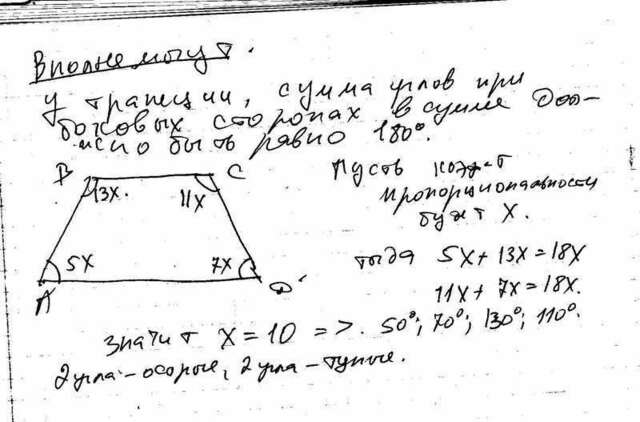 Вполне могут.
У трапеции, сумма углов при
боковых сторонах в сумме дол-
жно быть равно 180°.
B C
13x. 11x
5x 7x
A D
Пусть коэф-т
пропорциональности
будет x.
тогда 5x + 13x = 18x
11x + 7x = 18x.
Значит x = 10 => 50°; 70°; 130°; 110°.
2 угла - острые, 2 угла - тупые.